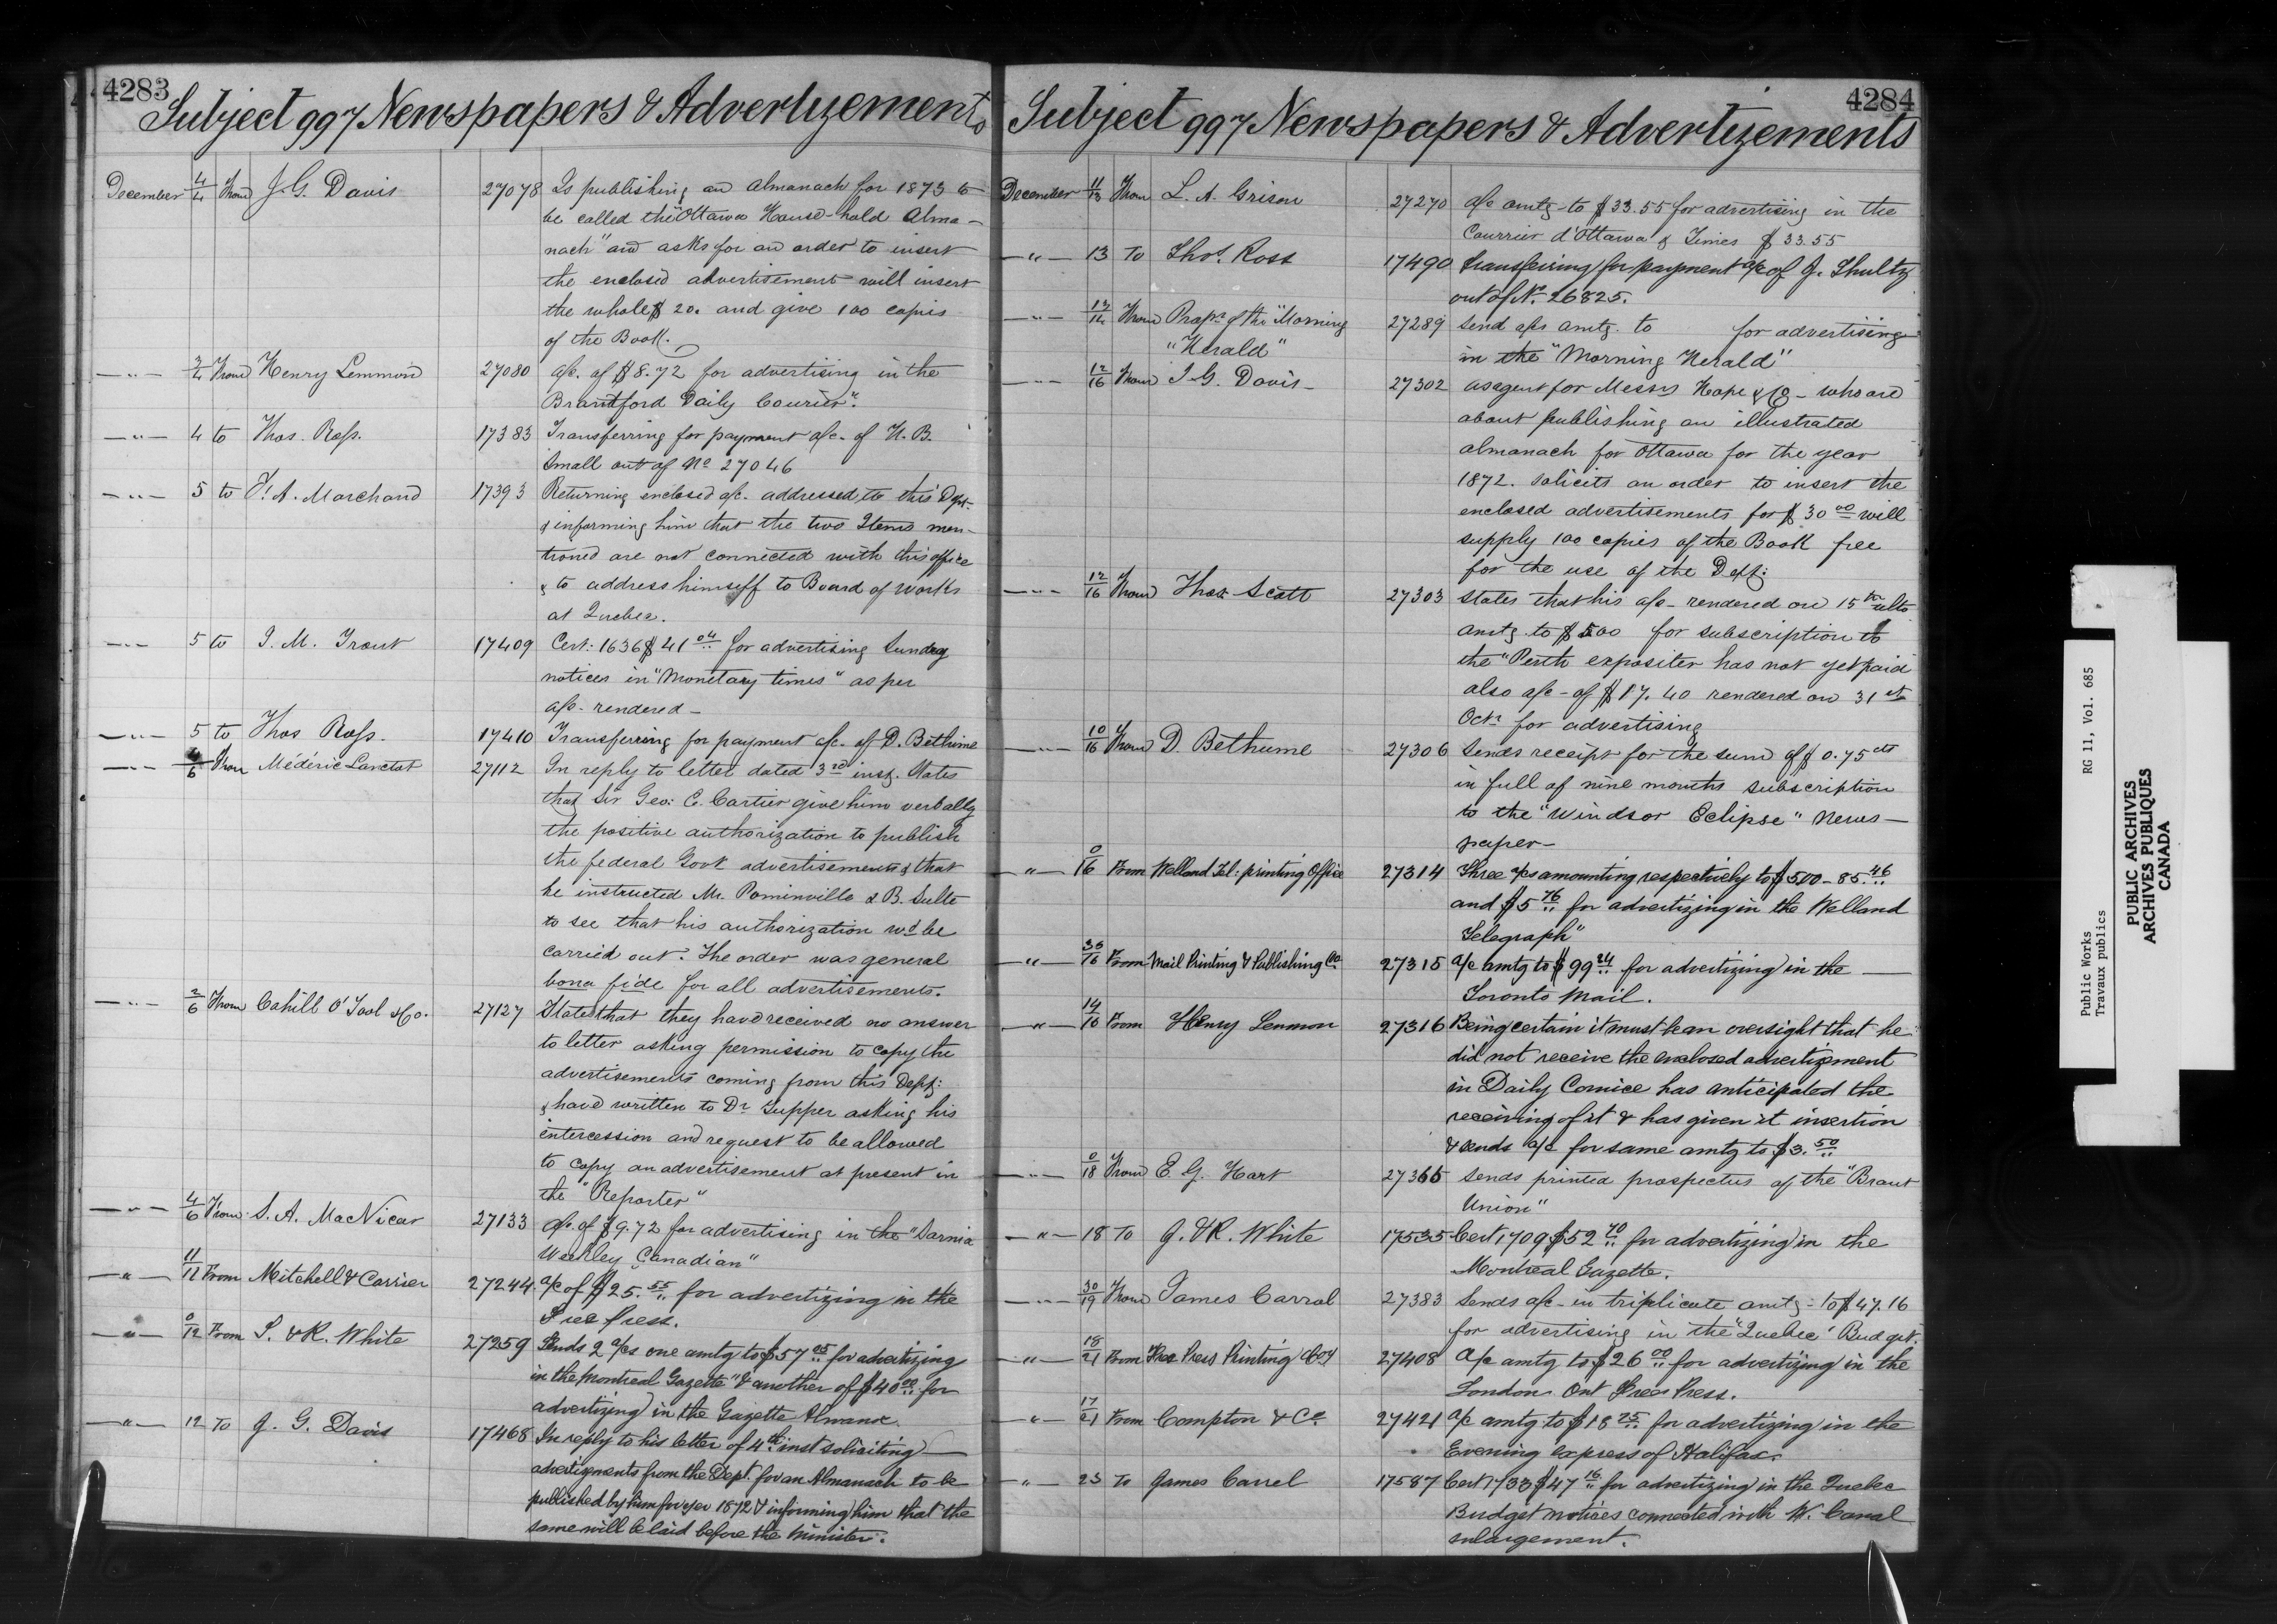 4283
Subject 997 Newspapers & Advertizements
December 4/4 From J. G. Davis 27078 Is publishing an Almanach for 1873 to
be called the "Ottawa House-hold Alma-
nach" and asks for an order to insert
the enclosed advertisement will insert
the whole $ 20. and give 100 copies
of the Book.
—"— 3/4 From Henry Lemmon 27080 a/c. of $8.72 for advertising in the
Brantford Daily Courier".
—"— 4 to Thos. Ross. 17383 Transferring for payment a/c. of H. B.
Small out of No 27046
—"— 5 to F. A. Marchand 17393 Returning enclosed a/c. addressed to this Dept.
& informing him that the two Items men-
tioned are not connected with this office
& to address himself to Board of Works
at Quebec.
—"— 5 to J. M. Trout 17409 Cert: 1636 $41 04 for advertising Sundry
notices in "Monetary times" as per
a/c- rendered-
—"— 5 to Thos Ross. 17410 Transferring for payment a/c. of D. Bethune
—"— 4/6 From Médéric Lanctot 27112 In reply to letter dated 3rd inst. States
that Sir Geo: E. Cartier give him verbally
the positive authorization to publish
the federal Govt advertisements & that
he instructed Mr. Pominville & B. Sulte
to see that his authorization wd be
carried out. The order was general
bona fide for all advertisements.
—"— 2/6 From Cahill O'Tool & Co. 27127 States that they have received no answer
to letter asking permission to copy the
advertisements coming from this Dept:
& have written to Dr Tupper asking his
intercession and request to be allowed
to copy an advertisement at present in
the "Reporter"
—"— 4/6 From S. A. MacVicar 27133 a/c. of $9.72 for advertising in the "Sarnia
Weekley Canadian"
—"— 11/12 From Mitchell & Carrier 27244 a/c of $25.55 for advertizing in the
Free Press.
—"— 0/12 From T. & R. White 27259 Sends 2 a/cs one amtg to $57 05 for advertizing
in the Montreal Gazette" & another of $40 00 for
advertizing in the Gazette Almanac.
—"— 12 To J. G. Davis 17468 In reply to his letter of 4th inst soliciting
advertizments from the Dept. for an Almanach to be
published by him for year 1872 & informing him that the
same will be laid before the Minister.
4284
Subject 997 Newspapers & Advertizements
December 11/13 From L. A. Grison 27270 a/c amtg to $33.55 for advertising in the
Courrier d'Ottawa & Times $33.55
—"— 13 To Thos. Ross 17490 transfering for payment a/c of J. Shultz
out of No. 26825.
—"— 12/14 From Proprs of the "Morning 27289 Send a/cs amtg. to for advertising
"Herald" in the "Morning Herald"
—"— 12/16 From J. G. Davis- 27302 as agent for Messrs Hope & Co- who are
about publishing an illustrated
almanach for Ottawa for the year
1872. solicits an order to insert the
enclosed advertisements for $30 00 will
supply 100 copies of the Book free
for the use of the Dept:
—"— 12/16 From Thos Scott 27303 States that his a/c- rendered on 15th ulto
amtg. to $5.00 for subscription to
the "Perth expositer has not yet paid
also a/c- of $17.40 rendered on 31st
Octr for advertising
—"— 10/16 From D. Bethume 27306 Sends receipt for the sum of $0.75 cts
in full of nine months subscription
to the "Windsor Eclipse" News-
paper-
—"— 0/16 From Welland Tel: printing Office 27314 Three a/cs amounting respectively to $500-85.46
and $5 76 for advertizing in the Welland
Telegraph"
—"— 36/16 From Mail Printing & Publishing Co 27315 a/c amtg to $99 24 for advertizing in the —
Toronto Mail.
—"— 14/16 From Henry Lemmon 27316 Being certain it must be an oversight that he
did not receive the enclosed advertizement
in Daily Cornice has anticipated the
receiving of it & has given it insertion
& sends a/c for same amtg to $3.50
—"— 0/18 From E. G. Hart 27365 Sends printed prospectus of the "Brant
Union"
—"— 18 To J. & R. White 17535 Cert 1709 $52 70 for advertizing in the
Montreal Gazette.
—"— 30/19 From James Carrol 27383 Sends a/c- in triplicate amtg- to $47.16
for advertising in the "Quebec" Budget.
—"— 18/21 From Free Press Printing Coy 27408 A/c amtg to $26 00 for advertizing in the
London Ont Free Press.
—"— 17/21 From Compton & Co 27421 a/c amtg to $18 75 for advertizing in the
Evening express of Halifax.
—"— 23 To James Carrel 17587 Cert 1733 $47 16 for advertizing in the Quebec
Budget notices connected with W. Canal
enlargement.
Public Works RG 11, Vol. 685
Travaux publics
PUBLIC ARCHIVES
ARCHIVES PUBLIQUES
CANADA